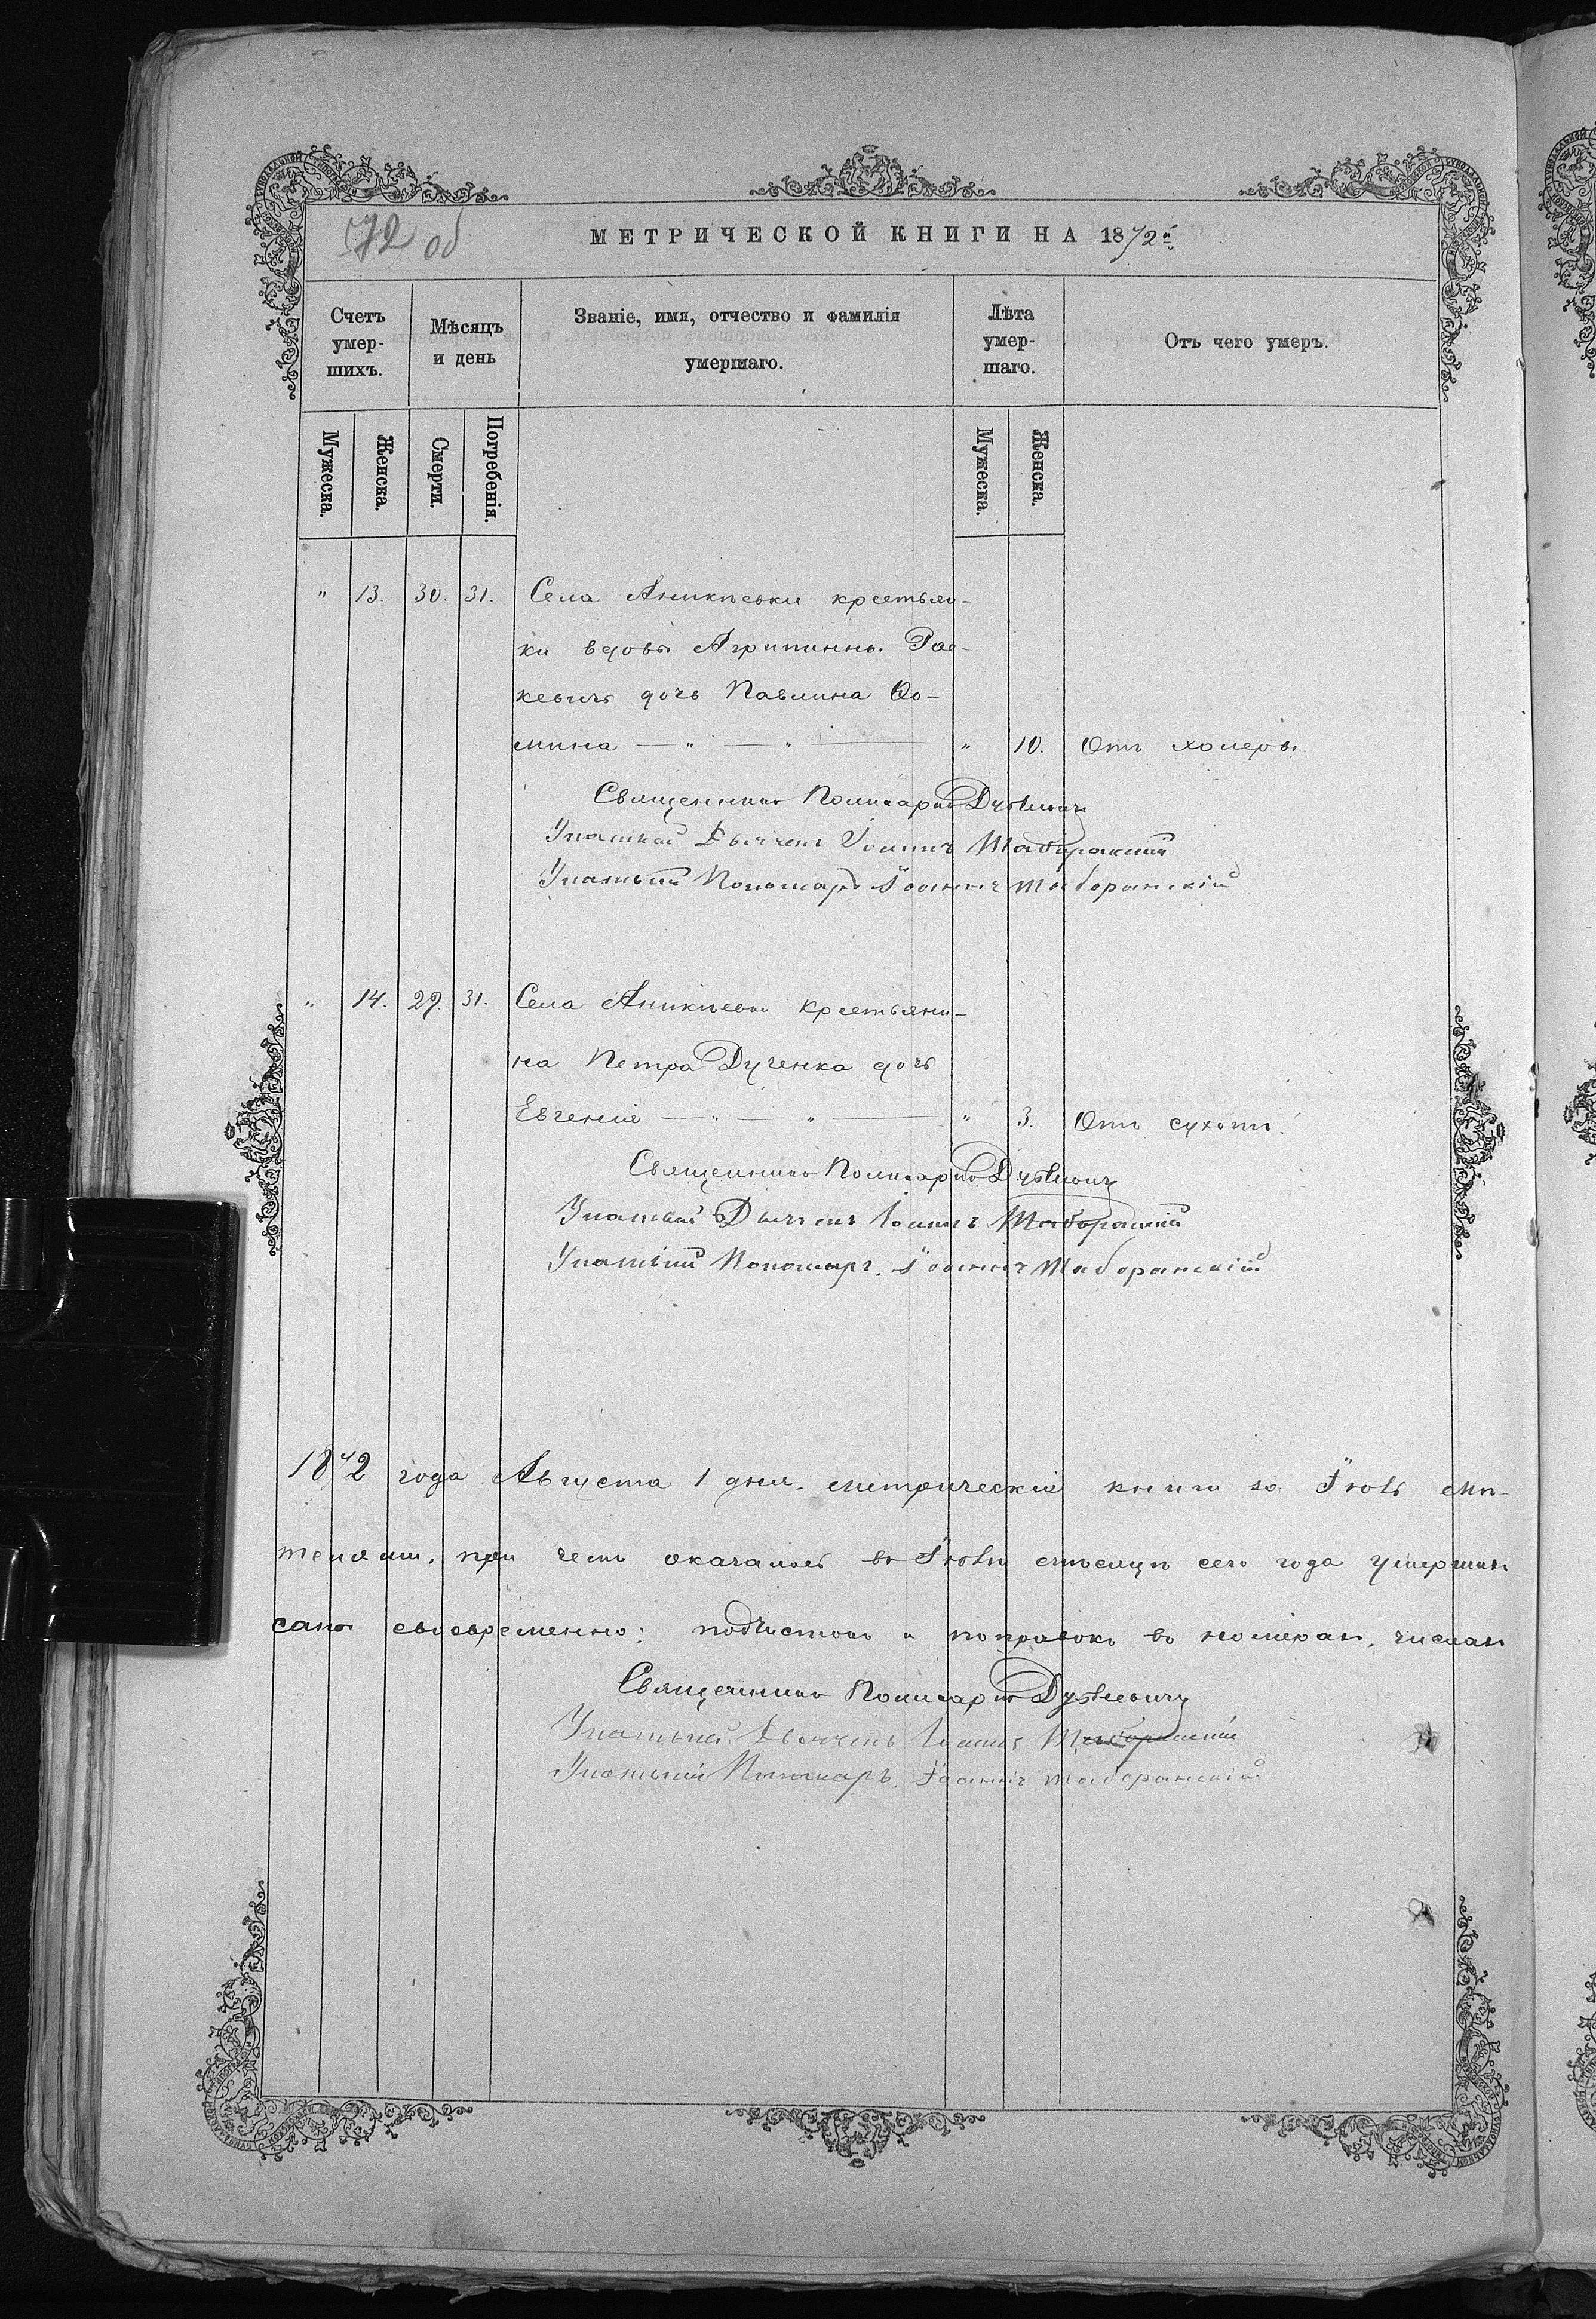 72 об
МЕТРИЧЕСКОЙ КНИГИ НА 1872й
Счетъ умер-шихъ.
Мѣсяцъ и день
Званіе, имя, отчество и фамилія умершаго.
Лѣта умер-шаго.
Отъ чего умеръ.
Мужеска.
Женска.
Смерти.
Погребенія.
Мужеска.
Женска.
" 13. 30. 31. Села Аникѣевки крестьян-
ки вдовы Агрипинны
дочь Павлина Ѳо-
мина — " — " — " 10. Отъ холеры.
Священникъ Поликарпъ
Уштатный Дьячекъ Іоаннъ Таборанскій
Уштатный Пономарь Іоаннъ Таборанскій
" 14. 29. 31. Села Аникѣевки крестьяни-
на Петра Дученка дочь
Евгенія — " — " — " 3. Отъ сухотъ.
Священникъ Поликарпъ
Уштатный Дьячекъ Іоаннъ Таборанскій
Уштатный Пономарь Іоаннъ Таборанскій
1872 года Августа 1 дня. метрическія книги за Іюль
при чемъ оказалось въ Іюлѣ мѣсяцѣ сего года умершихъ
сано своевременно; подчистокъ и поправокъ въ номерахъ, числахъ
Священникъ Поликарпъ
Уштатный Дьячекъ Іоаннъ Таборанскій
Уштатный Пономарь Іоаннъ Таборанскій